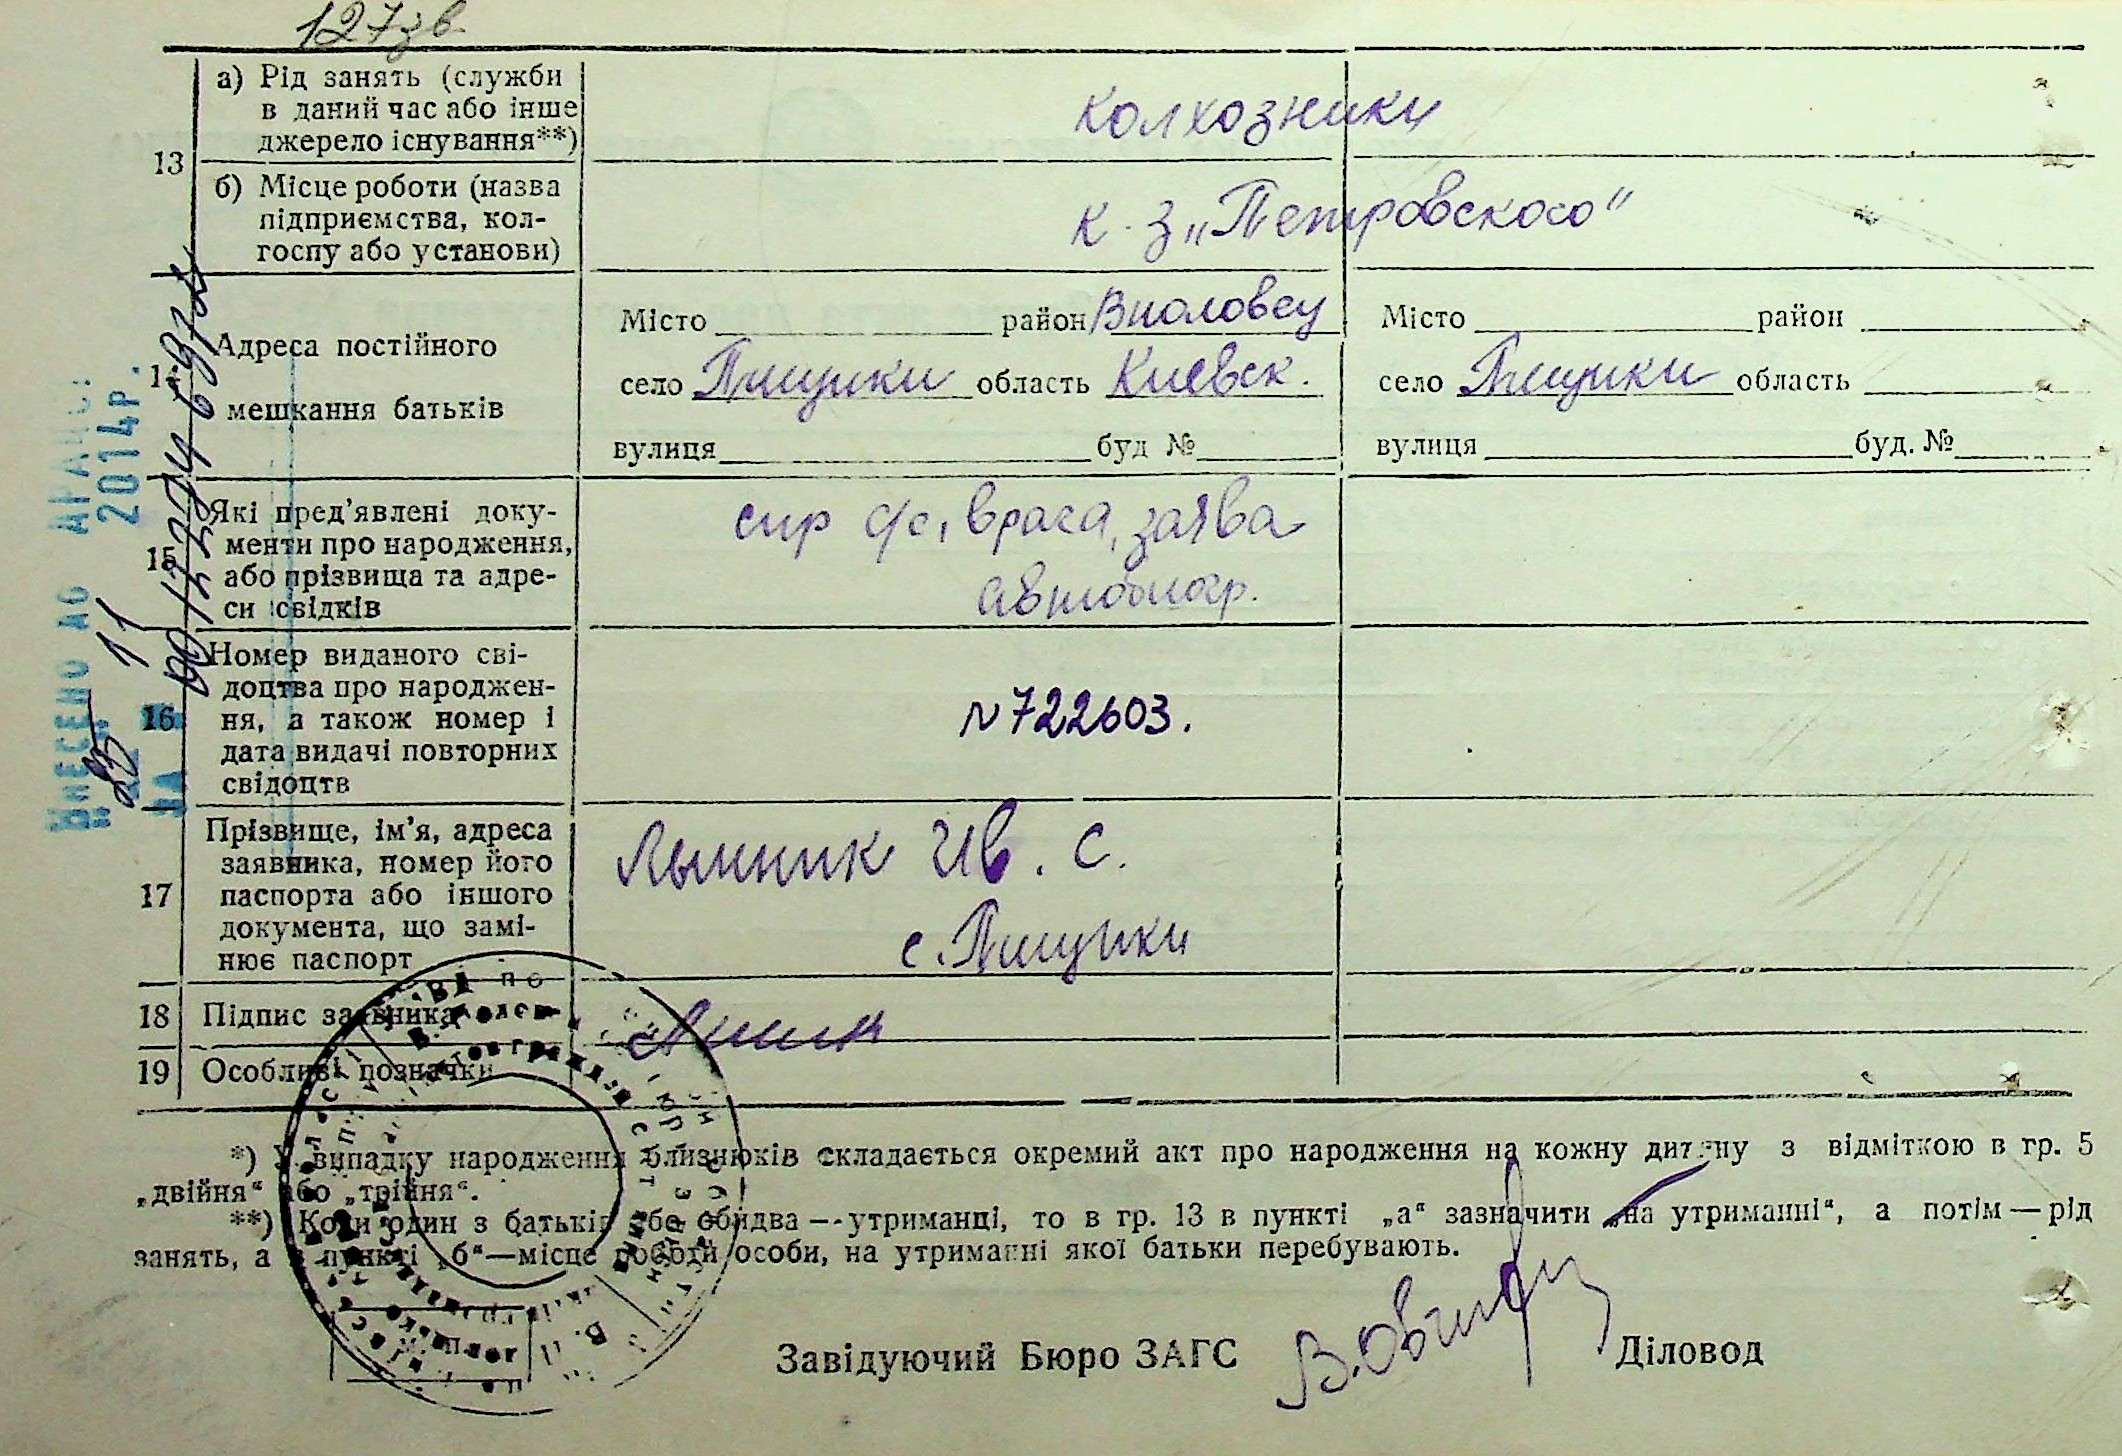 127зв.
13
а) Рід занять (служби
в даний час або інше
джерело існування**)
колхозники
б) Місце роботи (назва
підприємства, кол-
госпу або установи)
к. з „Петровского"
14
Адреса постійного
мешкання батьків
Місто район
село Пищики область Киевск.
вулиця буд №
Місто район
село Пищики область
вулиця буд. №
15
Які пред'явлені доку-
менти про народження,
або прізвища та адре-
си свідків
спр с/с, врача, заява
автобиогр.
16
Номер виданого сві-
доцтва про народжен-
ня, а також номер і
дата видачі повторних
свідоцтв
N 722603.
17
Прізвище, ім'я, адреса
заявника, номер його
паспорта або іншого
документа, що замі-
нює паспорт
Ив. С.
с. Пищики
18 Підпис заявника
19 Особливі позначки
*) У випадку народження близнюків складається окремий акт про народження на кожну дитину з відміткою в гр. 5
„двійня“ або „трійня“.
**) Коли один з батьків або обидва — утриманці, то в гр. 13 в пункті „а“ зазначити „на утриманні“, а потім — рід
занять, а в пункті „б“—місце роботи особи, на утриманні якої батьки перебувають.
Завідуючий Бюро ЗАГС
Діловод
ВНЕСЕНО ДО ДРАЦС
25 11 2014р.